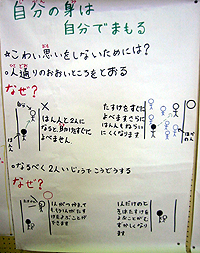 自分の身は
自分でまもる
☆こわい思いをしないためには?
○人通りのおおいところをとおる
なぜ?
はんにんと2人に
なると、助けをすぐに
よべません。
たすけをすぐに
よべますさらに
はんにんもねらい
にくくなります
○なるべく2人いじょうでこうどうする
なぜ?
1人が
もう1人がたす
けをよぶことがで
きます
1人だけのと
きはたすけを
よぶことがむ
ずかしくなり
ます